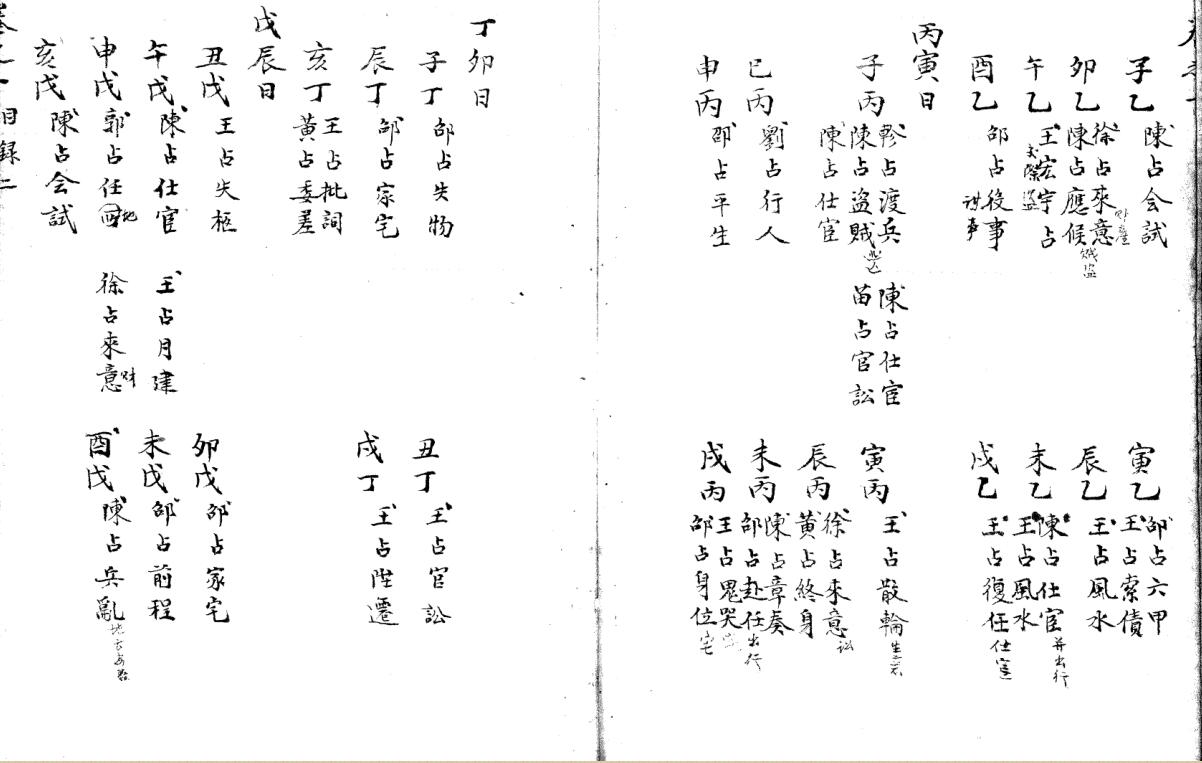 子乙 陳占会試
寅乙 邵占六甲
王占索債
卯乙 徐占來意
陳占應候 賊盜
辰乙 王占風水
午乙 王宏宇占
失際盜
未乙 陳占仕宦 并出行
王占風水
酉乙 邵占役事
戌乙 王占復任 仕宦
丙寅日
子丙 占渡兵 陳占仕宦
陳占盜賊 苗占官訟
陳占仕宦
寅丙 王占散輪
辰丙 徐占來意 訟
黃占終身
巳丙 劉占行人
未丙 陳占章奏
邵占赴任 出行
申丙 邵占平生
戌丙 王占鬼哭
邵占身位 宅
丁卯日
子丁 邵占失物
丑丁 王占官訟
辰丁 邵占家宅
戌丁 王占陞遷
亥丁 王占批詞
黃占委差
戊辰日
丑戊 王占失柩
卯戊 邵占家宅
午戊 陳占仕宦 王占月建
未戊 邵占前程
申戊 郭占任 徐占來意 財
酉戊 陳占兵亂
亥戊 陳占会試
目録二